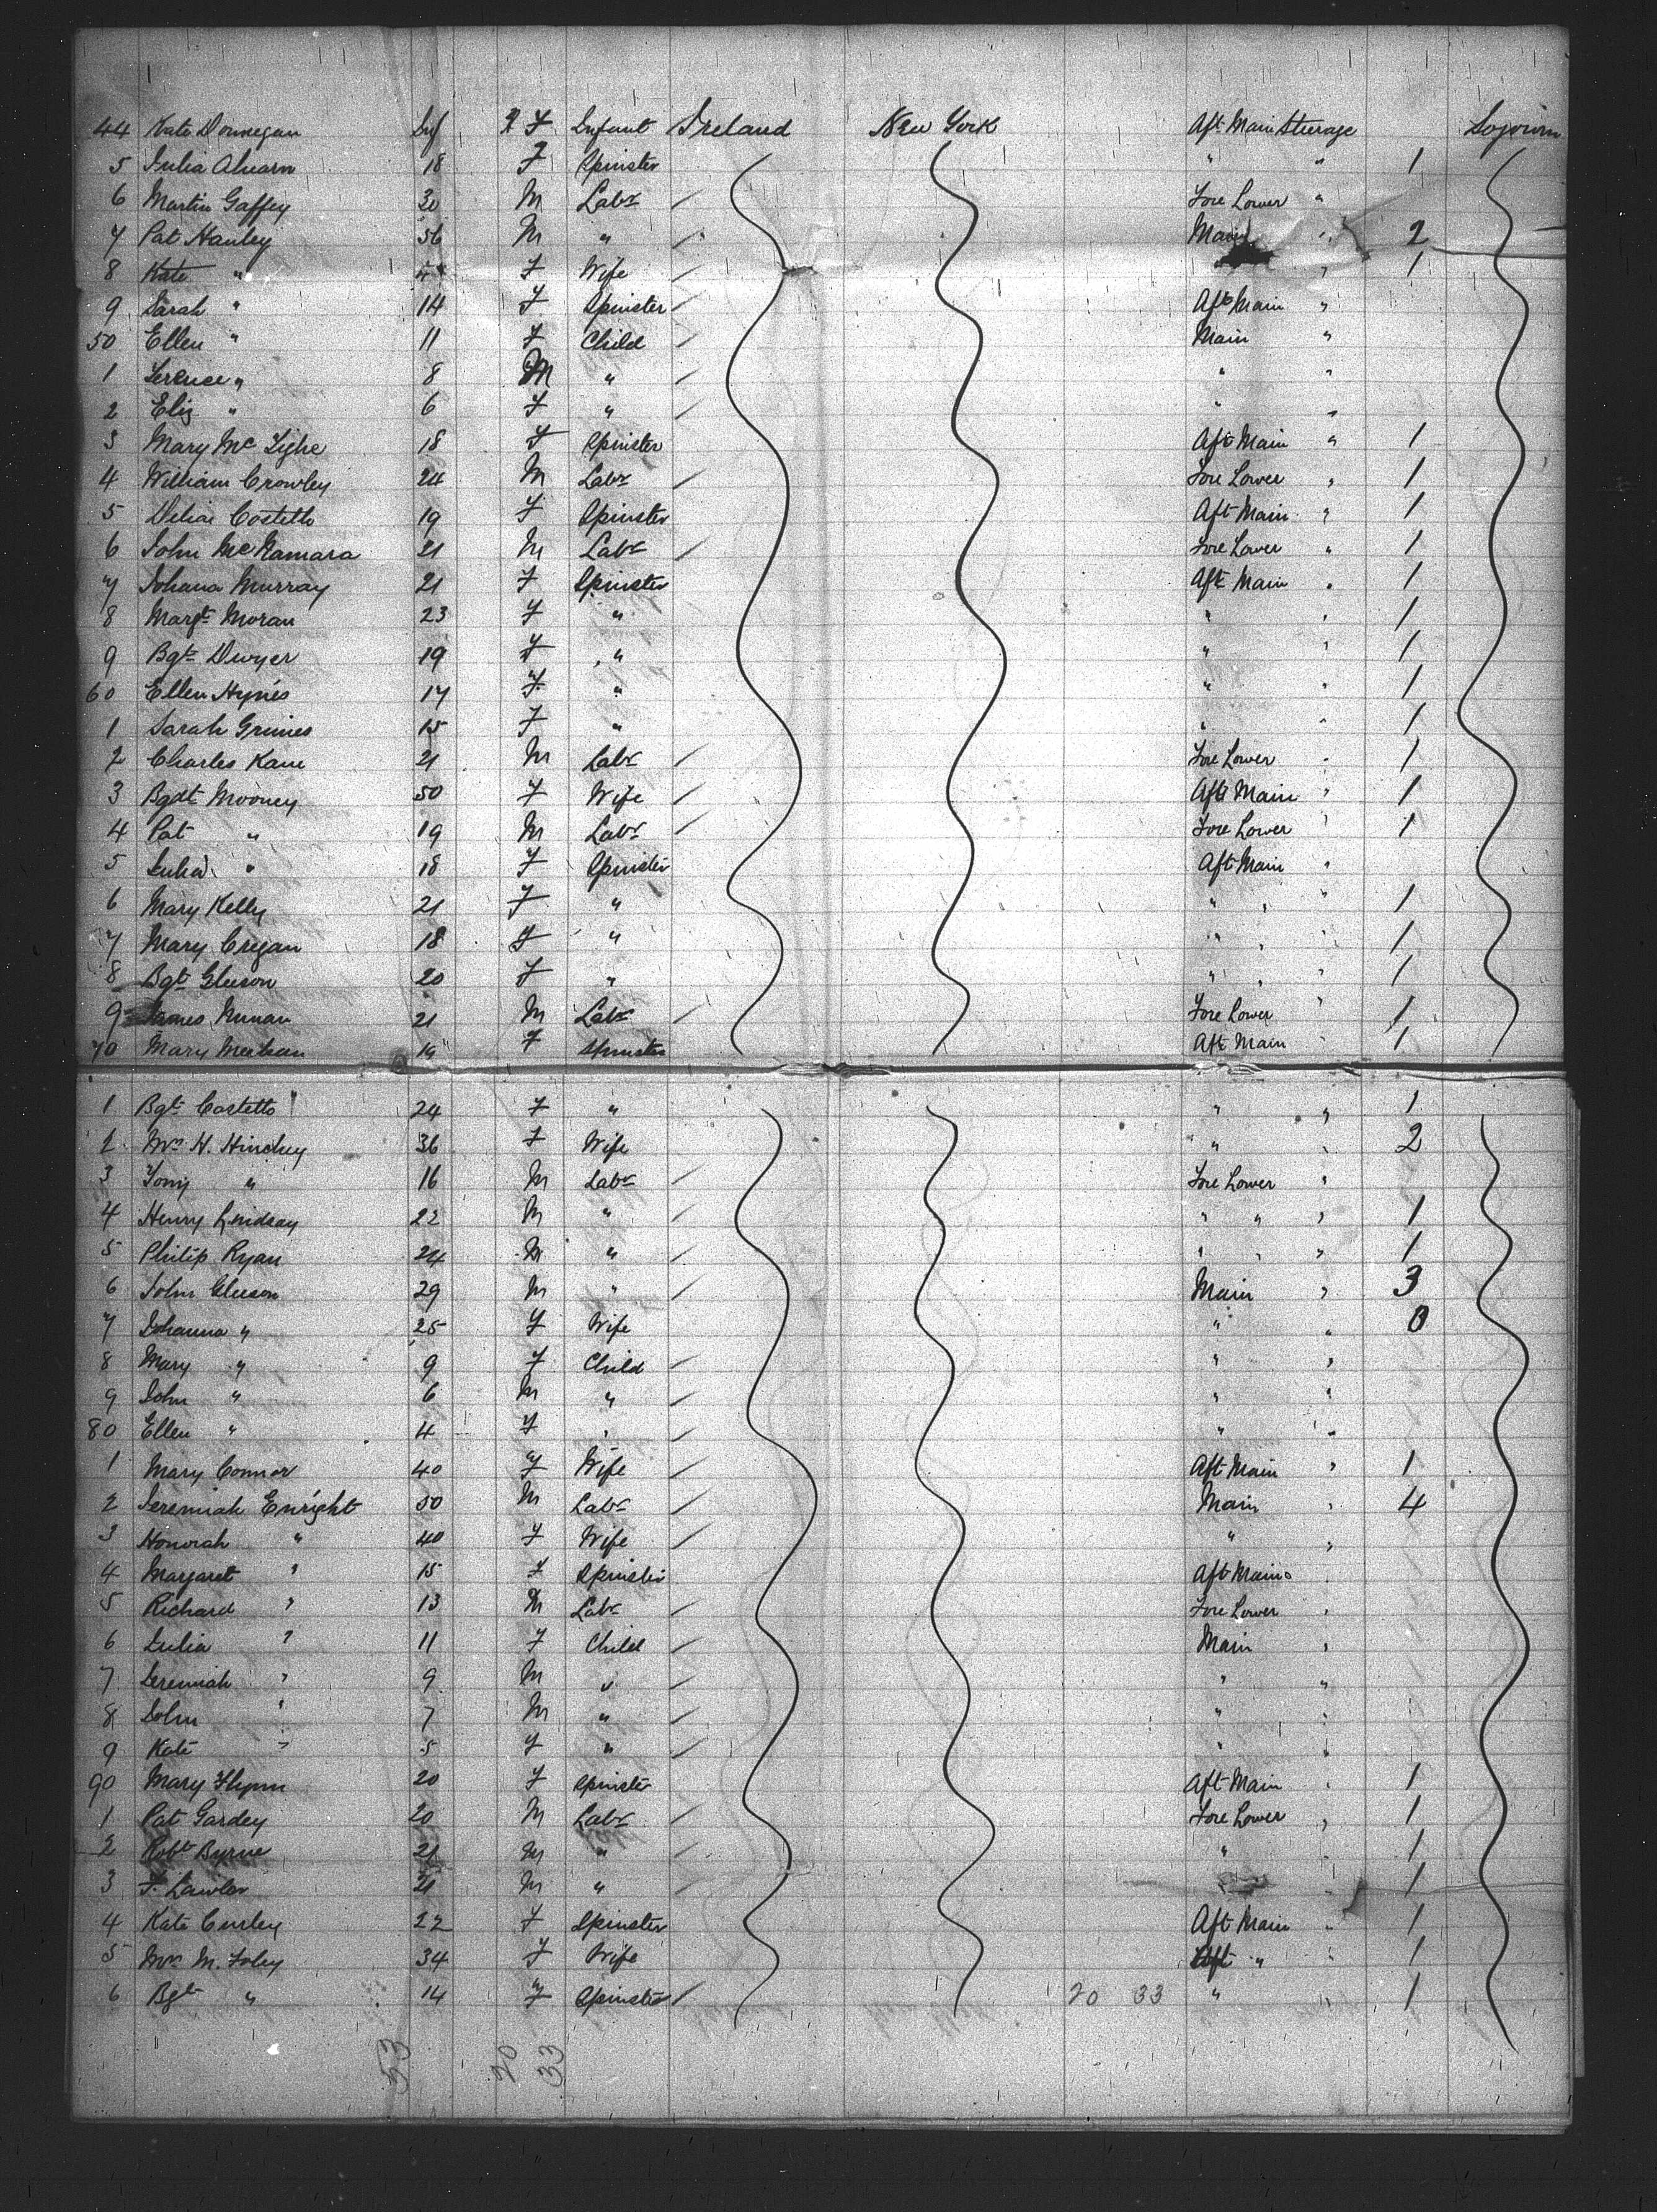 44 Kate Donnegan Inf F Infant Ireland New York Aft Main Steerage Sojourn
5 Julia Ahearn 18 F Spinster " " 1
6 Martin Gaffey 30 M Labr Fore Lower "
7 Pat Hanley 56 M " Main " 2
8 Kate " F Wife " 1
9 Sarah " 14 F Spinster Aft Main "
50 Ellen " 11 F Child Main "
1 Terence " 8 M " " "
2 Eliz " 6 F " " "
3 Mary McTighe 18 F Spinster Aft Main " 1
4 William Crowley 24 M Labr Fore Lower " 1
5 Delia Costello 19 F Spinster Aft Main " 1
6 John McNamara 21 M Labr Fore Lower " 1
7 Johana Murray 21 F Spinster Aft Main " 1
8 Margt Moran 23 F " " " 1
9 Bgt Dwyer 19 F " " " 1
60 Ellen Hynes 17 F " " " 1
1 Sarah Grimes 15 F " " " 1
2 Charles Kane 21 M Labr Fore Lower " 1
3 Bgdt Mooney 50 F Wife Aft Main " 1
4 Pat " 19 M Labr Fore Lower " 1
5 Julia " 18 F Spinster Aft Main "
6 Mary Kelly 21 F " " " " 1
7 Mary Cregan 18 F " " " " 1
8 Bgt Gleeson 20 F " " " " 1
9 James Nunan 21 M Labr Fore Lower " 1
70 Mary Meehan 19 F Spinster Aft Main " 1
1 Bgt Costello 24 F " " " 1
2 Mrs H. Hinchey 36 F Wife " " 2
3 Tomy " 16 M Labr Fore Lower "
4 Henry Lindsay 22 M " " " " 1
5 Philip Ryan 24 M " " " " 1
6 John Gleeson 29 M " Main " 3
7 Johanna " 25 F Wife " " 0
8 Mary " 9 F Child " "
9 John " 6 M " " "
80 Ellen " 4 F " " "
1 Mary Connor 40 F Wife Aft Main " 1
2 Jeremiah Enright 50 M Labr Main " 4
3 Honorah " 40 F Wife " "
4 Margaret " 15 F Spinster Aft Main
5 Richard " 13 M Labr Fore Lower "
6 Julia " 11 F Child Main "
7 Jeremiah " 9 M " " "
8 John " 7 M " " "
9 Kate " 5 F " " "
90 Mary Flynn 20 F Spinster Aft Main " 1
1 Pat Gardey 20 M Labr Fore Lower " 1
2 Robt Byrne 21 M " " 1
3 T. Lawlor 21 M " " 1
4 Kate Curley 22 F Spinster Aft Main " 1
5 Mrs M. Foley 34 F Wife Aft " " 1
6 Bgt " 14 F Spinster 20 33 " " 1
53 20 33